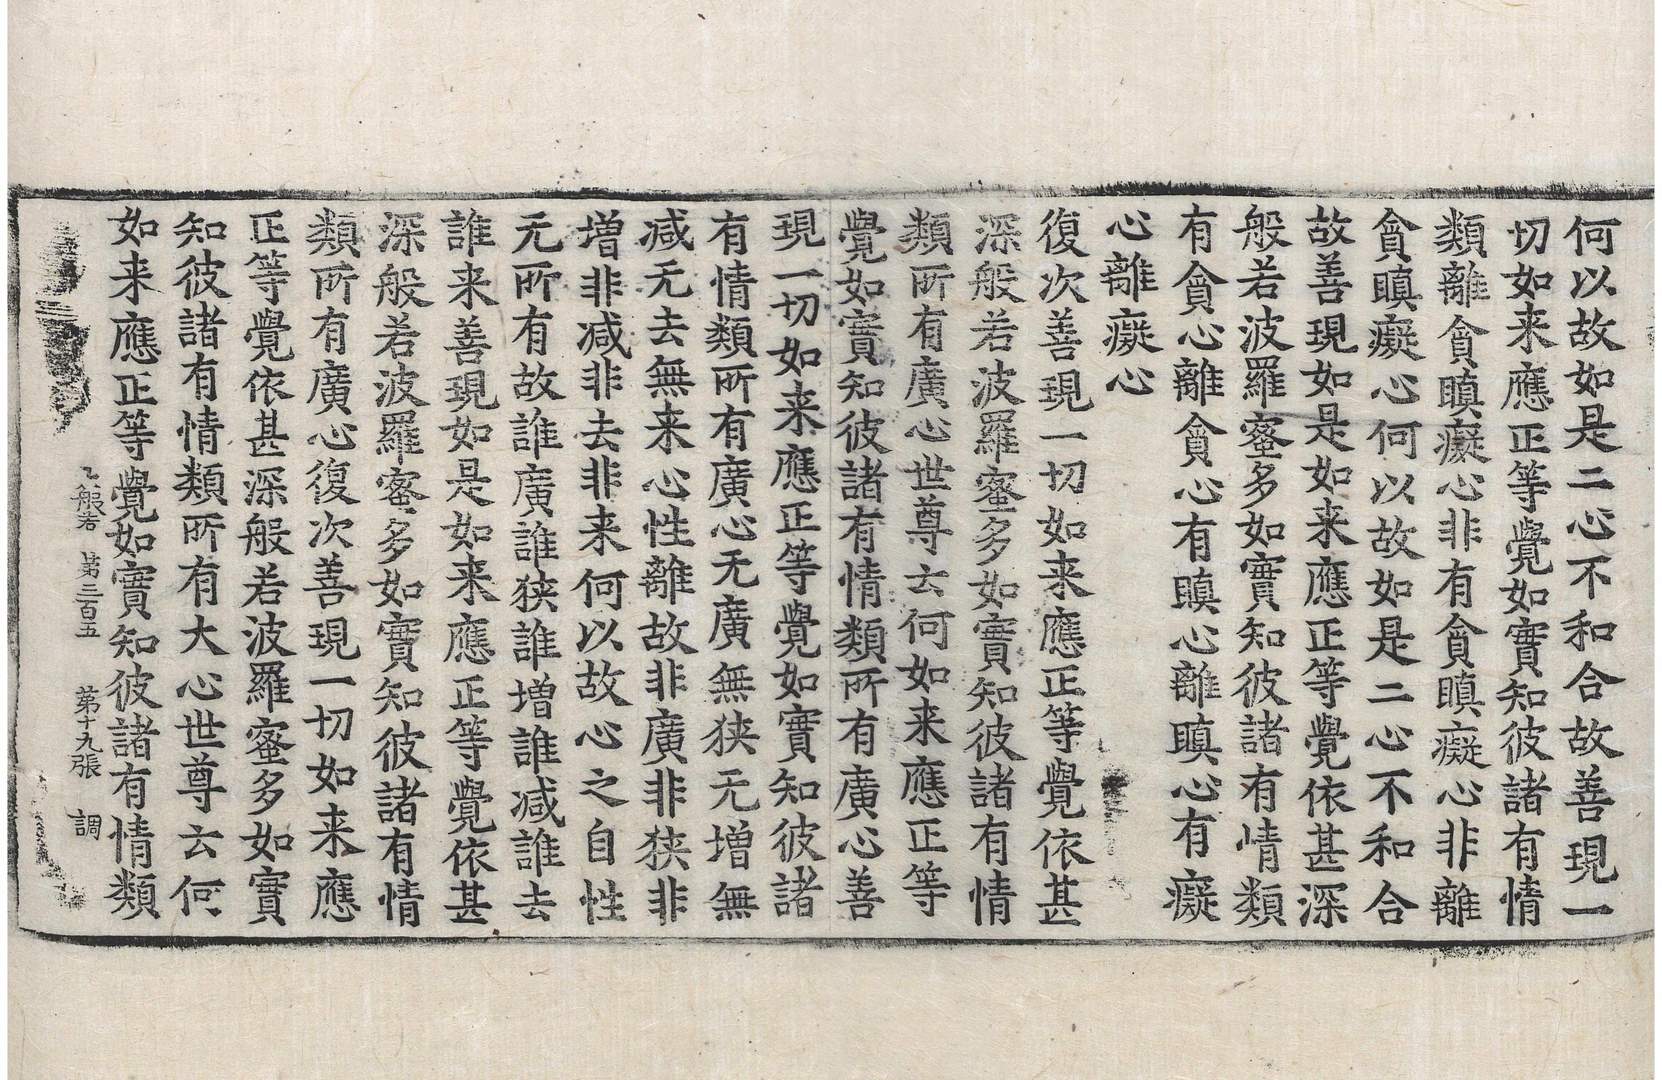 何以故如是二心不和合故善現一
切如来應正等覺如實知彼諸有情
類離貪瞋癡心非有貪瞋癡心非離
貪瞋癡心何以故如是二心不和合
故善現如是如来應正等覺依甚深
般若波羅蜜多如實知彼諸有情類
有貪心離貪心有瞋心離瞋心有癡
心離癡心
復次善現一切如来應正等覺依甚
深般若波羅蜜多如實知彼諸有情
類所有廣心世尊云何如来應正等
覺如實知彼諸有情類所有廣心善
現一切如来應正等覺如實知彼諸
有情類所有廣心无廣無狹无增無
减无去無来心性離故非廣非狹非
増非减非去非来何以故心之自性
无所有故誰廣誰狹誰増誰减誰去
誰来善現如是如来應正等覺依甚
深般若波羅蜜多如實知彼諸有情
類所有廣心復次善現一切如来應
正等覺依甚深般若波羅蜜多如實
知彼諸有情類所有大心世尊云何
如来應正等覺如實知彼諸有情類
般若 第三百五 第十九張 調